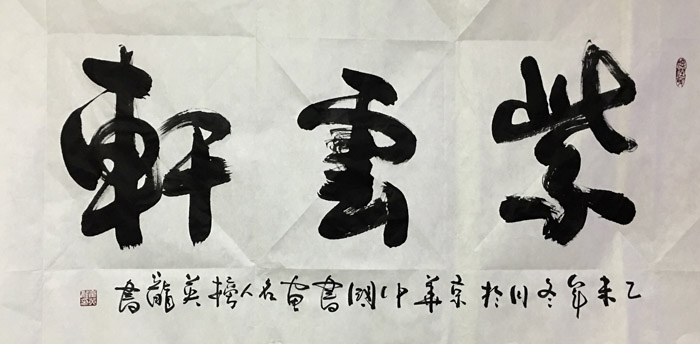 紫雲軒
乙未年冬月於京華中國書画名人榜英龍書